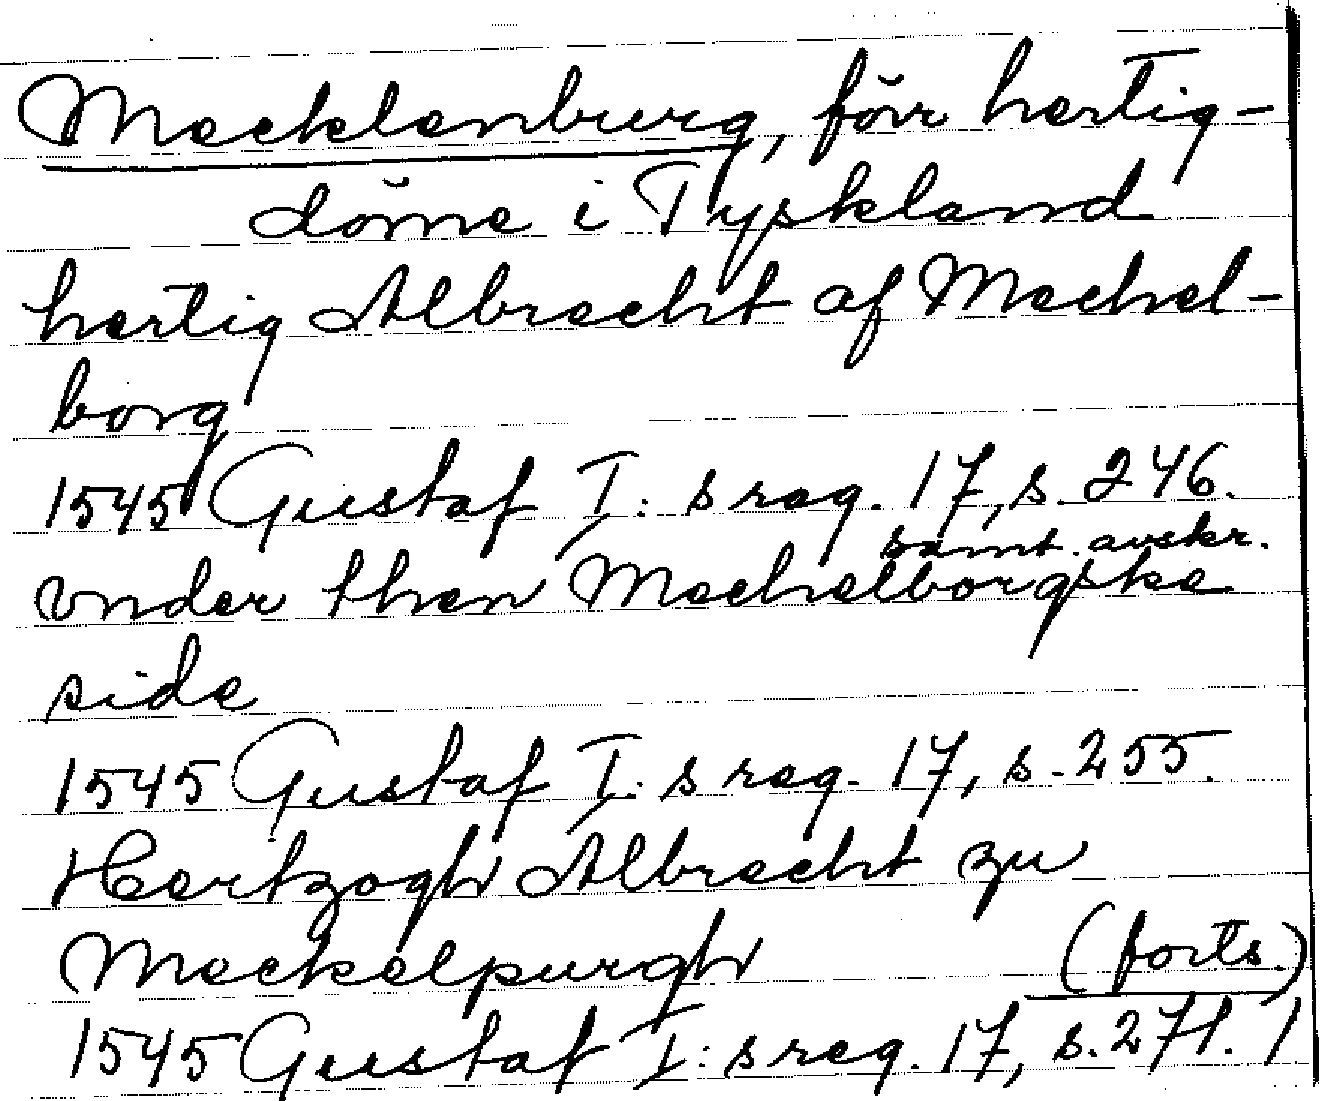 Mecklenburg, förr hertig-
döme i Tyskland
hertig Albrecht af Mechel-
borg
1545 Gustaf I:s reg. 17, s. 246.
samt. avskr.
vnder then Mechelborgske
side
1545 Gustaf I:s reg. 17, s. 255.
Hertzogh Albrecht zu
Meckelpurgh (forts.)
1545 Gustaf I:s reg. 17, s. 271. /